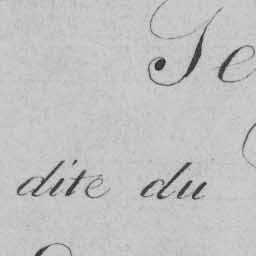 Te
dite du